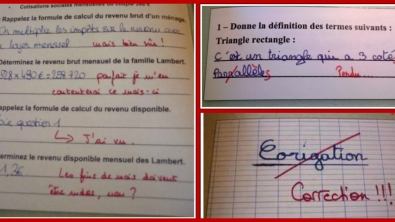 Cotisations sociales mensuelles du couple 128 €
Rappelez la formule de calcul du revenu brut d'un ménage.
On multiplie les impôts sur le revenu avec
le loyer mensuel mais bien sûr !
Déterminez le revenu brut mensuel de la famille Lambert.
528 x 490 € = 258 720 parfait je m'en
contenterai ce mois-ci
Rappelez la formule de calcul du revenu disponible.
question 1
↳ J'ai vu.
Déterminez le revenu disponible mensuel des Lambert.
1,36 Les fins de mois doivent
être rudes, non ?
1 – Donne la définition des termes suivants :
Triangle rectangle :
C'est un triangle qui a 3 coté
parallèles Perdu...
Corigation
Correction !!!